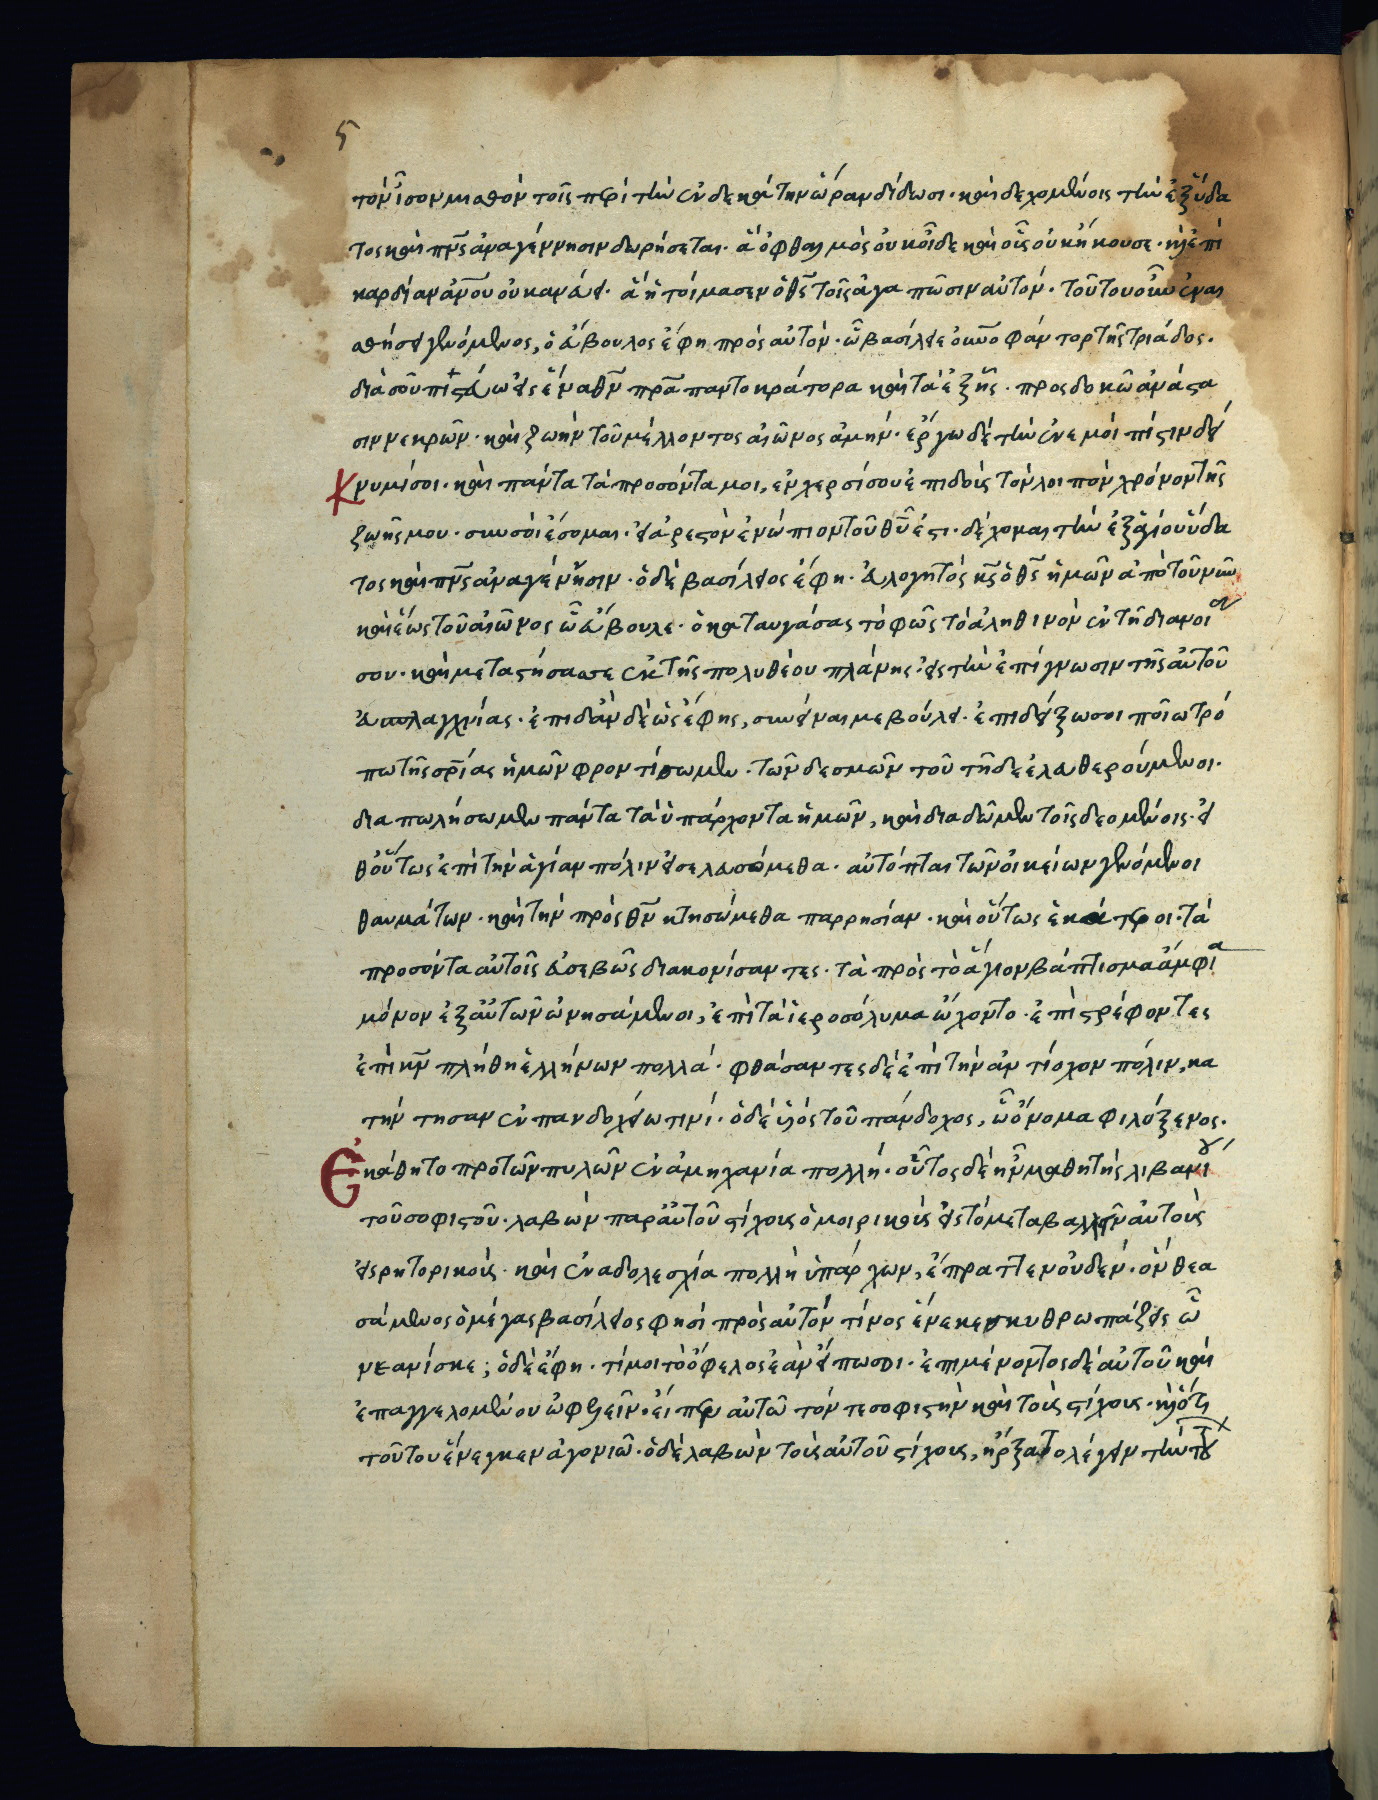 ς
τὸν ἴσον μισθὸν τοῖς περὶ τὴν ἑνδεκάτην ὥραν δίδωσι· καὶ δεχομένοις τὴν ἐξ ὕδα
τος καὶ πνς ἀναγέννησιν δωρήσεται· ἃ ὀφθαλμὸς οὐκ οἶδε καὶ οὖς οὐκ ἤκουσε· καὶ ἐπὶ
καρδίαν ἀνου οὐκ ἀνέβη· ἃ ἡτοίμασεν ὁ θς τοῖς ἀγαπῶσιν αὐτόν· τούτου οὖν ἐναι
σθήσει γενόμενος, ὁ εὔβουλος ἔφη πρὸς αὐτόν· ὦ βασίλειε οὐνοφάντορ τῆς τριάδος·
διὰ σοῦ πιστεύω εἰς ἕνα θν πρα παντοκράτορα καὶ τὰ ἑξῆς· προσδοκῶ ἀνάστα
σιν νεκρῶν· καὶ ζωὴν τοῦ μέλλοντος αἰῶνος ἀμήν· ἔργω δὲ τὴν ἐν ἐμοὶ πίστιν δει
κνυμί σοι· καὶ πάντα τὰ προσόντα μοι, ἐν χερσί σου ἐπιδοὺς τὸν λοιπὸν χρόνον τῆς
ζωῆς μου· σὺν σοὶ ἔσομαι· εἰ ἀρεστὸν ἐνώπιον τοῦ θυ ἐστι· δέχομαι τὴν ἐξ ἁγίου ὕδα
τος καὶ πνς ἀναγέννησιν· ὁ δὲ βασίλειος ἔφη· εὐλογητὸς κς ὁ θς ἡμῶν ἀπὸ τοῦ νῦν
καὶ ἕως τοῦ αἰῶνος ὦ εὔβουλε· ὁ καταυγάσας τὸ φῶς τὸ ἀληθινὸν ἐν τῆ διανοία
σου· καὶ μεταστήσας σε ἐκ τῆς πολυθέου πλάνης· εἰς τὴν ἐπίγνωσιν τῆς αὐτοῦ
εὐσπλαγχνίας· ἐπειδὰν δὲ ὡς ἔφης, συνεῖναι με βούλει· ἐπιδείξω σοι ποίω τρό
πω τῆς σρίας ἡμῶν φροντίσωμεν· τῶν δεσμῶν τοῦ τῆδε ἐλευθερούμενοι·
διαπωλήσωμεν πάντα τὰ ὑπάρχοντα ἡμῶν, καὶ διαδῶμεν τοῖς δεομένοις· εἶ
θ' οὕτως ἐπὶ τὴν ἁγίαν πόλιν εἰσελευσώμεθα· αὐτόπται τῶν οἰκείων γενόμενοι
θαυμάτων· καὶ τὴν πρὸς θν κτησώμεθα παρρησίαν· καὶ οὕτως ἑκάτεροι· τὰ
προσόντα αὐτοῖς εὐσεβῶς διακονίσαντες· τὰ πρὸς τὸ ἅγιον βάπτισμα ἄμφια
μόνον ἐξ αὐτῶν ὠνησάμενοι, ἐπὶ τὰ ἱεροσόλυμα ὤχοντο· ἐπιστρέφοντες
ἐπὶ κν πλήθη ἑλλήνων πολλά· φθάσαντες δὲ ἐπὶ τὴν ἀντιόχου πόλιν, κα
τήντησαν ἐν πανδοχείω τινί· ὁ δὲ ὑιὸς τοῦ πάνδοχος, ὧ ὄνομα φιλόξενος·
Ἐκάθητο πρὸ τῶν πυλῶν ἐν ἀμηχανία πολλῆ· οὗτος δὲ ἦν μαθητὴς λιβανίου
τοῦ σοφιστοῦ· λαβὼν παρ' αὐτοῦ στίχους ὁμοιρικοὺς εἰς τὸ μεταβαλεῖν αὐτοὺς
εἰς ρητορικοὺς· καὶ ἐν ἀδολεσχία πολλῆ ὑπάρχων, ἔπραττεν οὐδέν· ὃν θεα
σάμενος ὁ μέγας βασίλειος φησὶ πρὸς αὐτόν τίνος ἕνεκε σκυθρωπάζεις ὦ
νεανίσκε; ὁ δὲ ἔφη· τί μοι τὸ ὄφελος ἐὰν εἴπω σοι· ἐπιμένοντος δὲ αὐτοῦ καὶ
ἐπαγγελομένου ὠφελεῖν· εἶπεν αὐτῶ τόν τε σοφιστὴν καὶ τοὺς στίχους· καὶ ὅτι
τούτου ἕνεγκεν ἀγονιῶ· ὁ δὲ λαβὼν τοὺς αὐτοῦ στίχους, ἤρξατο λέγειν τὴν τού